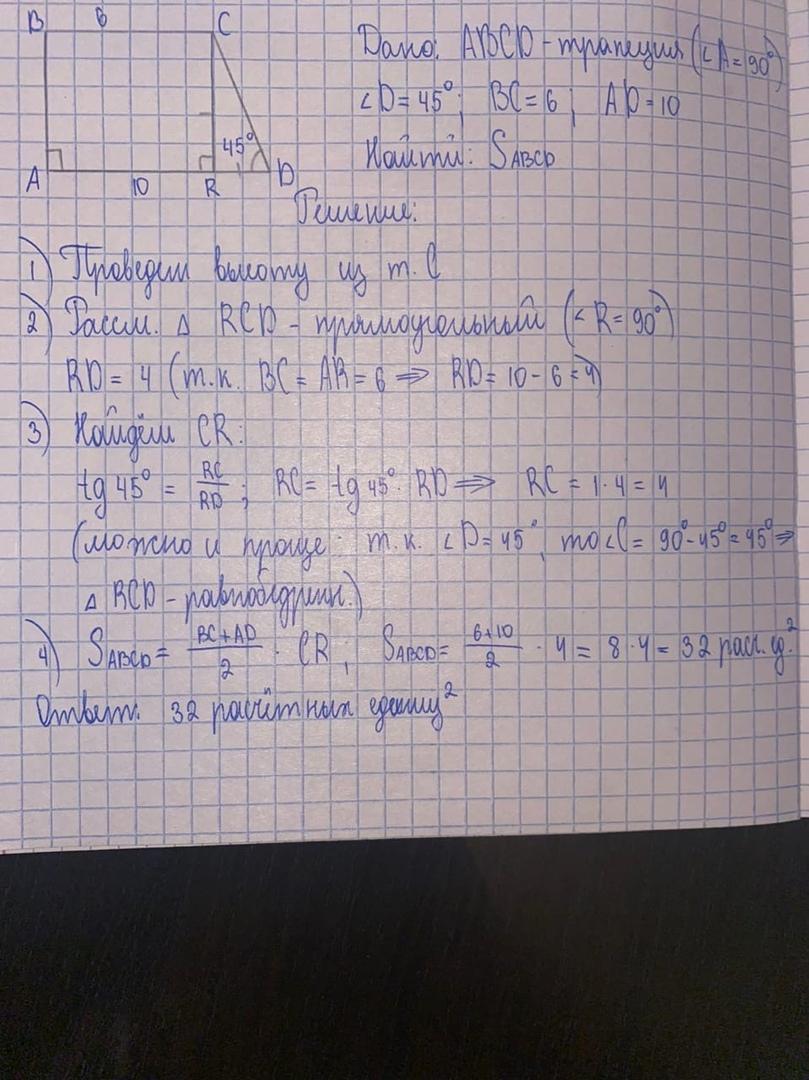 B 6 C
Дано: ABCD - трапеция (∠A = 90°)
∠D = 45°; BC = 6; AD = 10
Найти: S_ABCD
45°
A 10 R D
Решение:
1) Проведем высоту из т. C
2) Рассм. △ RCD - прямоугольный (∠R = 90°)
RD = 4 (т.к. BC = AR = 6 ⇒ RD = 10 - 6 = 4)
3) Найдём CR:
tg 45° = RC/RD; RC = tg 45° · RD ⇒ RC = 1 · 4 = 4
(можно и проще: т.к. ∠D = 45°, то ∠C = 90° - 45° = 45° ⇒
△ RCD - равнобедрен.)
4) S_ABCD = (BC + AD)/2 · CR; S_ABCD = (6 + 10)/2 · 4 = 8 · 4 = 32 расч. ед.²
Ответ: 32 расчётных единиц²